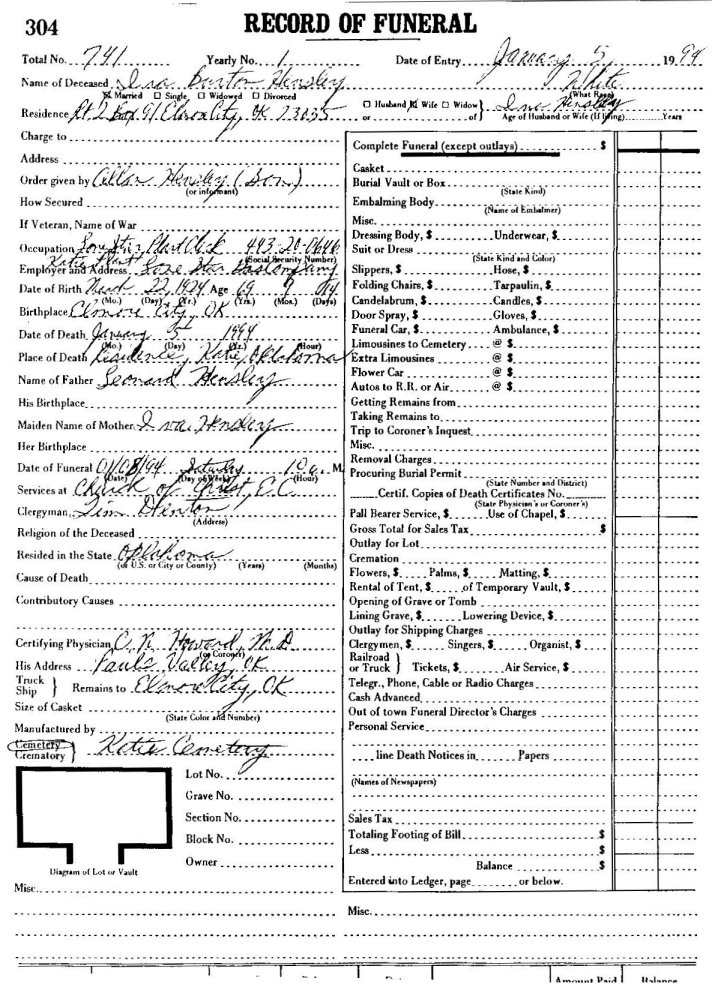 304 RECORD OF FUNERAL
Total No. 741 Yearly No. 1 Date of Entry January 5, 19 94
Name of Deceased Ira Burton Hensley White
☒ Married ☐ Single ☐ Widowed ☐ Divorced (What Race)
Residence Rt 2 Box 91 Elmore City, OK 73035 ☐ Husband ☒ Wife ☐ Widow } Ina Hensley
or of } Age of Husband or Wife (If living) Years
Charge to
Address
Order given by Allan Hensley (Son)
(or informant)
How Secured
If Veteran, Name of War
Occupation Lone Star Plant Clerk 443-20-0646
Katie Plant (Social Security Number)
Employer and Address Lone Star Gas Company
Date of Birth March 22, 1924 Age 69 9 14
(Mo.) (Day) (Yr.) (Yrs.) (Mos.) (Days)
Birthplace Elmore City, OK
Date of Death January 5 1994
(Mo.) (Day) (Yr.) (Hour)
Place of Death Residence, Katie, Oklahoma
Name of Father Leonard Hensley
His Birthplace
Maiden Name of Mother Iva Hensley
Her Birthplace
Date of Funeral 01/08/94 Saturday 10 a. M.
(Date) (Day of Week) (Hour)
Services at Church of Christ, E.C.
Clergyman Jim Hinton
(Address)
Religion of the Deceased
Resided in the State Oklahoma
(of U.S. or City or County) (Years) (Months)
Cause of Death
Contributory Causes
Certifying Physician C. N. Howard, M.D
(or Coroner)
His Address Pauls Valley, OK
Truck
Ship } Remains to Elmore City, OK
Size of Casket
(State Color and Number)
Manufactured by
Cemetery
Crematory } Katie Cemetery
Lot No.
Grave No.
Section No.
Block No.
Owner
Diagram of Lot or Vault
Misc.
Complete Funeral (except outlays) $
Casket
Burial Vault or Box
(State Kind)
Embalming Body
(Name of Embalmer)
Misc.
Dressing Body, $ Underwear, $
Suit or Dress
(State Kind and Color)
Slippers, $ Hose, $
Folding Chairs, $ Tarpaulin, $
Candelabrum, $ Candles, $
Door Spray, $ Gloves, $
Funeral Car, $ Ambulance, $
Limousines to Cemetery @ $
Extra Limousines @ $
Flower Car @ $
Autos to R.R. or Air @ $
Getting Remains from
Taking Remains to
Trip to Coroner's Inquest
Misc.
Removal Charges
Procuring Burial Permit
(State Number and District)
Certif. Copies of Death Certificates No.
(State Physician's or Coroner's)
Pall Bearer Service, $ Use of Chapel, $
Gross Total for Sales Tax $
Outlay for Lot
Cremation
Flowers, $ Palms, $ Matting, $
Rental of Tent, $ of Temporary Vault, $
Opening of Grave or Tomb
Lining Grave, $ Lowering Device, $
Outlay for Shipping Charges
Clergymen, $ Singers, $ Organist, $
Railroad
or Truck } Tickets, $ Air Service, $
Telegr., Phone, Cable or Radio Charges
Cash Advanced
Out of town Funeral Director's Charges
Personal Service
line Death Notices in Papers
(Names of Newspapers)
Sales Tax
Totaling Footing of Bill $
Less $
Balance $
Entered into Ledger, page or below.
Misc.
Amount Paid Balance